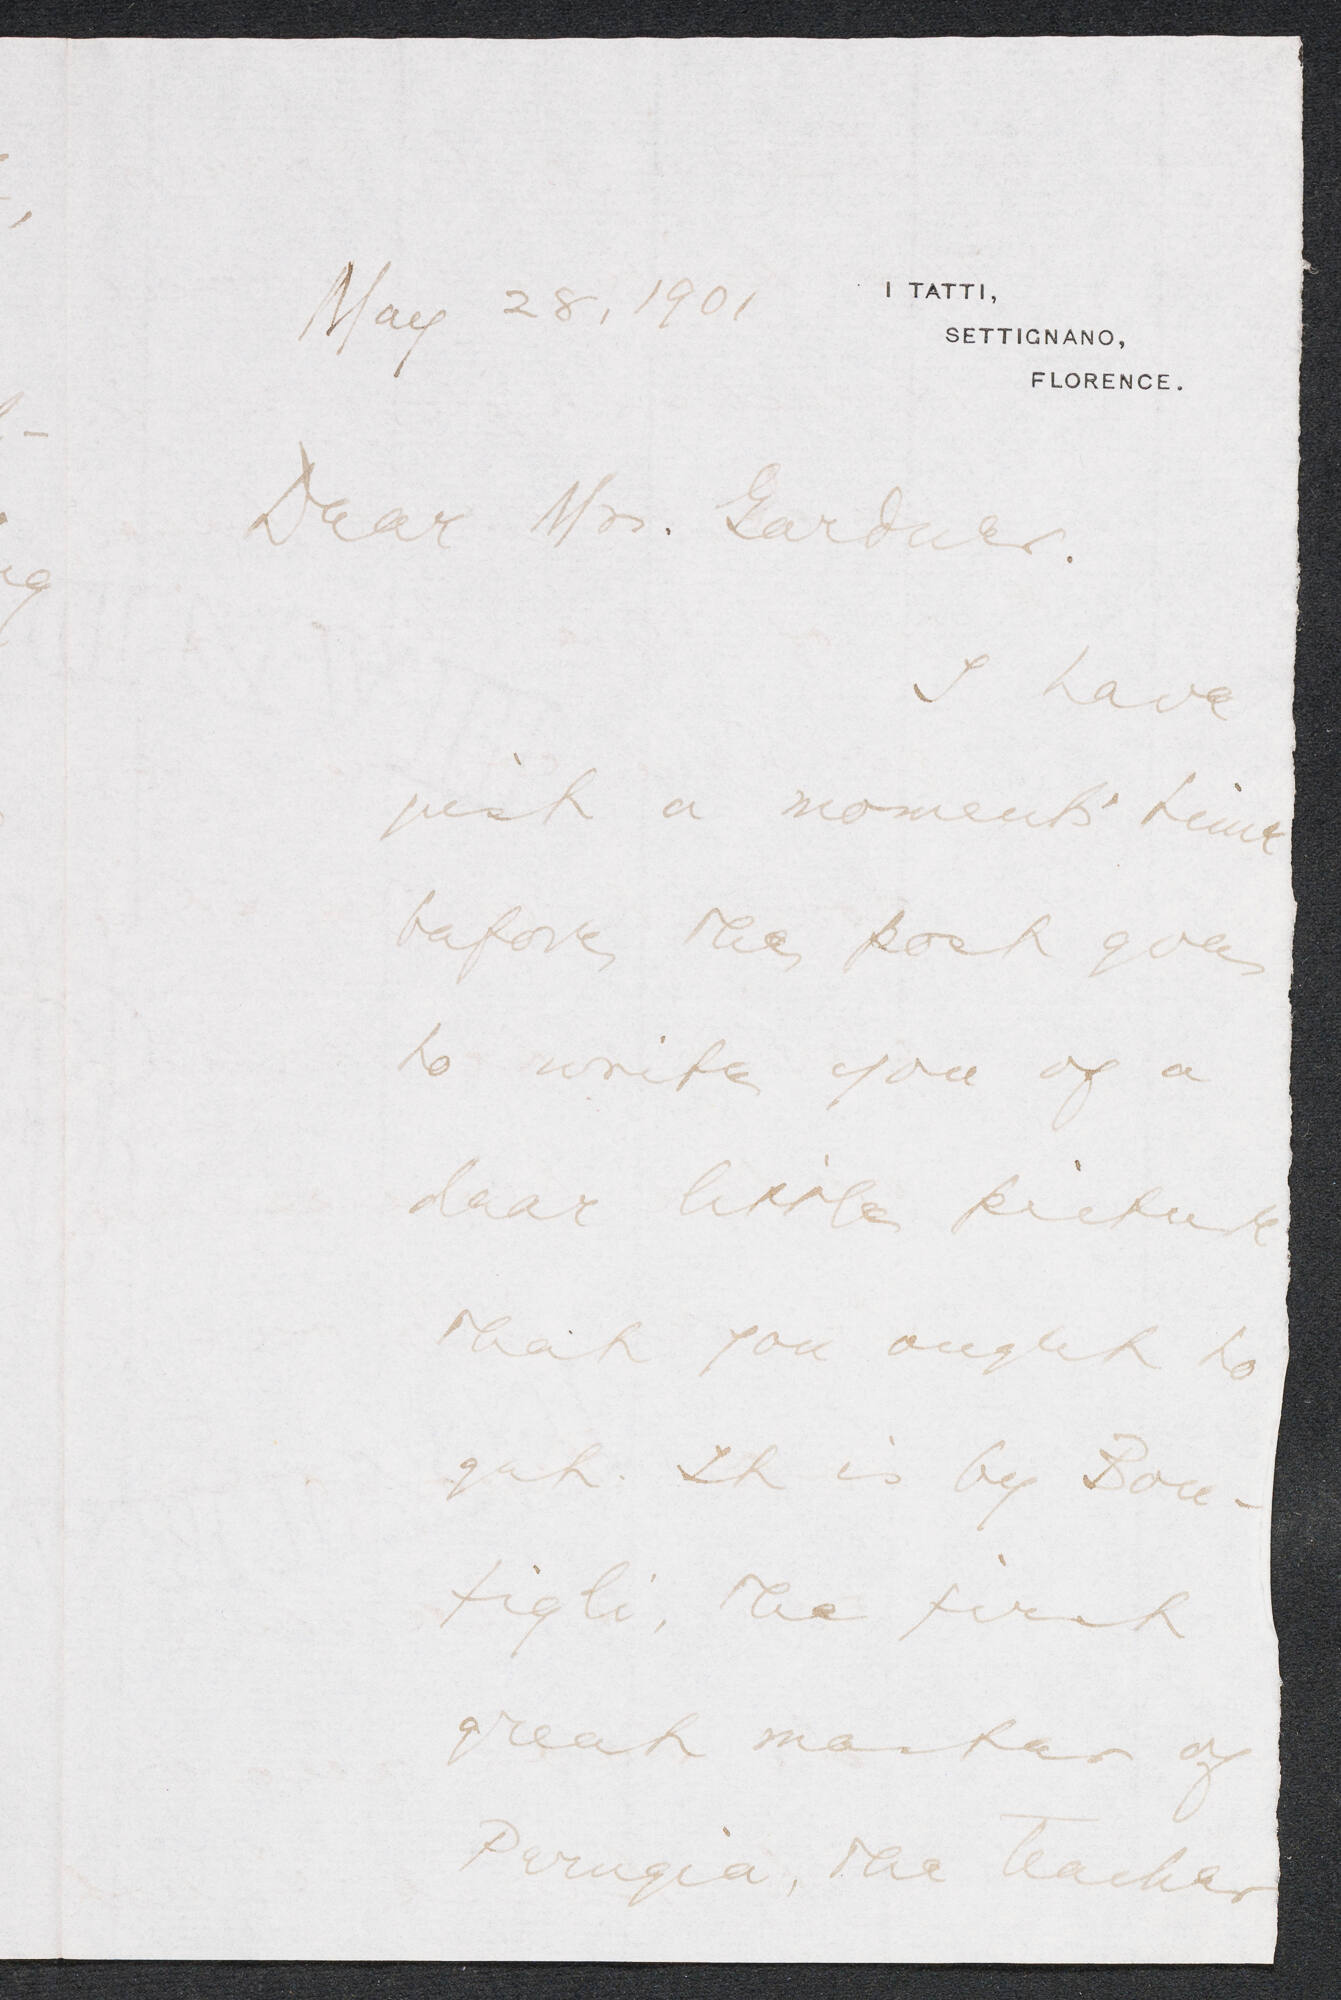 May 28, 1901
I TATTI,
SETTIGNANO,
FLORENCE.
Dear Mrs. Gardner.
I have
just a moments' time
before the post goes
to write you of a
dear little picture
that you ought to
get. It is by Bon-
figli, the first
great master of
Perugia, the teacher